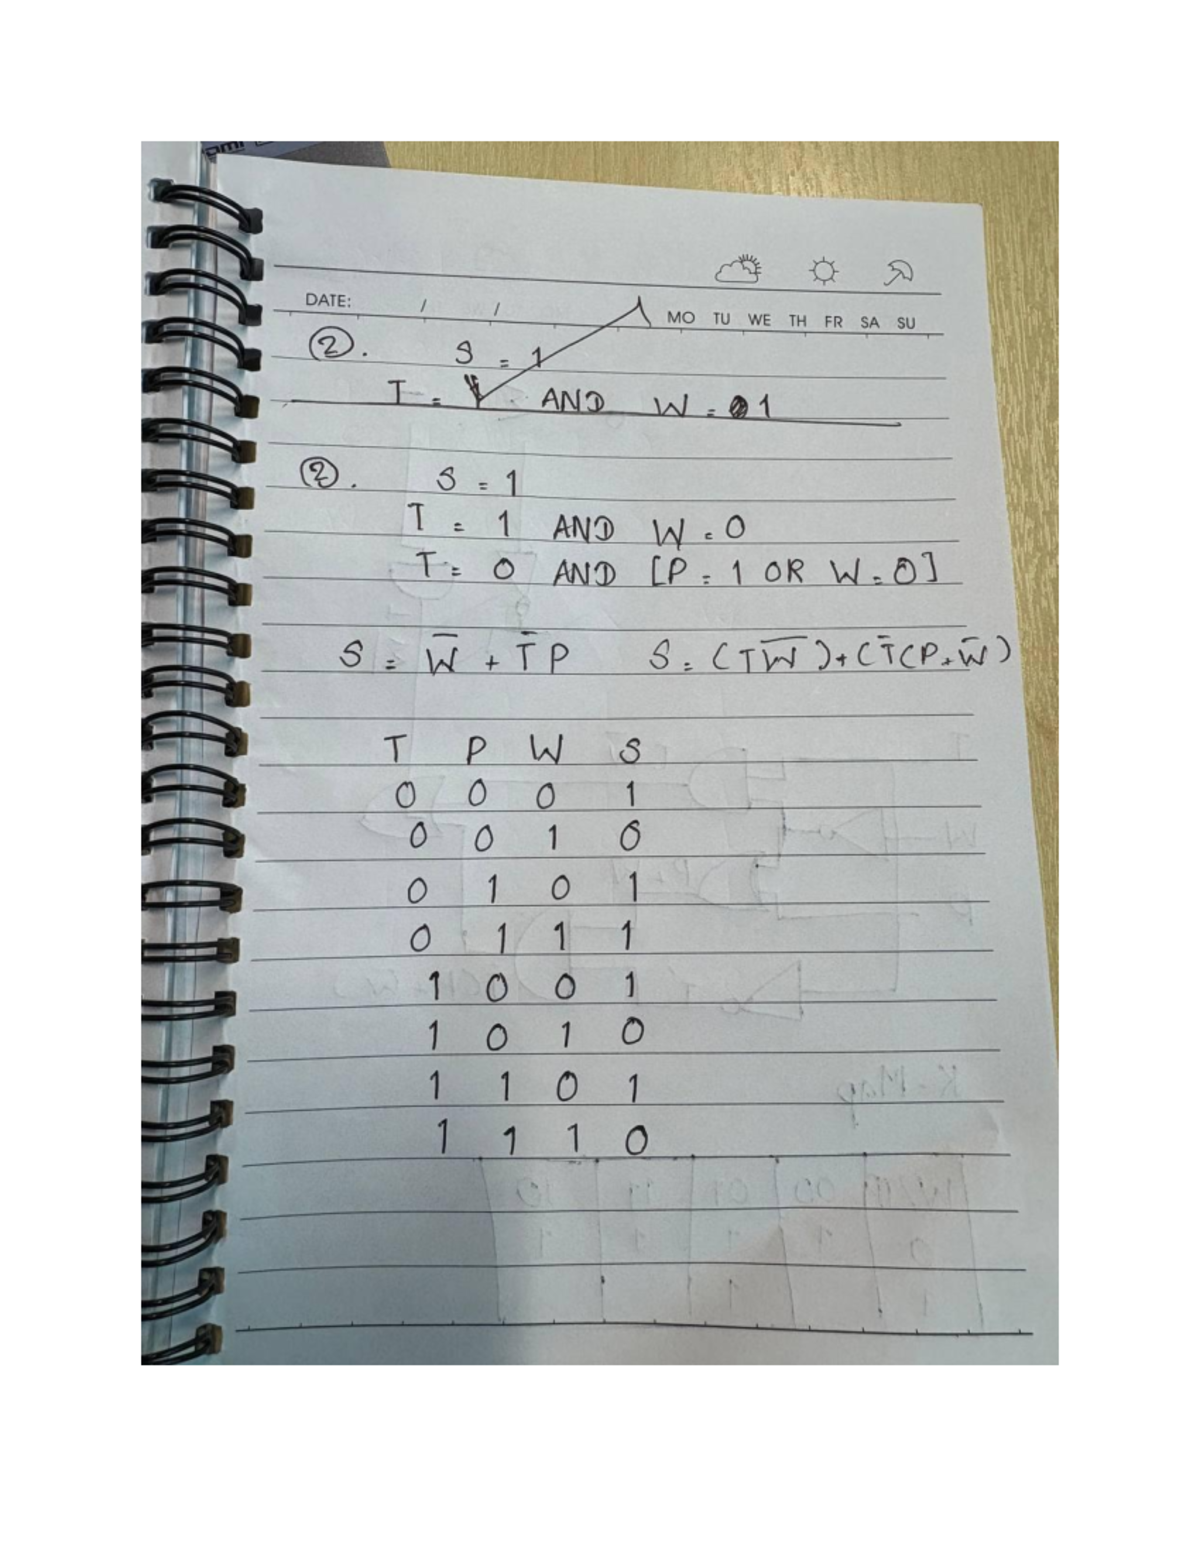 DATE: / / MO TU WE TH FR SA SU
②. S = 1
T = AND W = 1
②. S = 1
T = 1 AND W = 0
T = 0 AND [P = 1 OR W = 0]
S = W̅ + T̅ P S = (TW̅) + (T̅(P+W̅)
T P W S
0 0 0 1
0 0 1 0
0 1 0 1
0 1 1 1
1 0 0 1
1 0 1 0
1 1 0 1
1 1 1 0